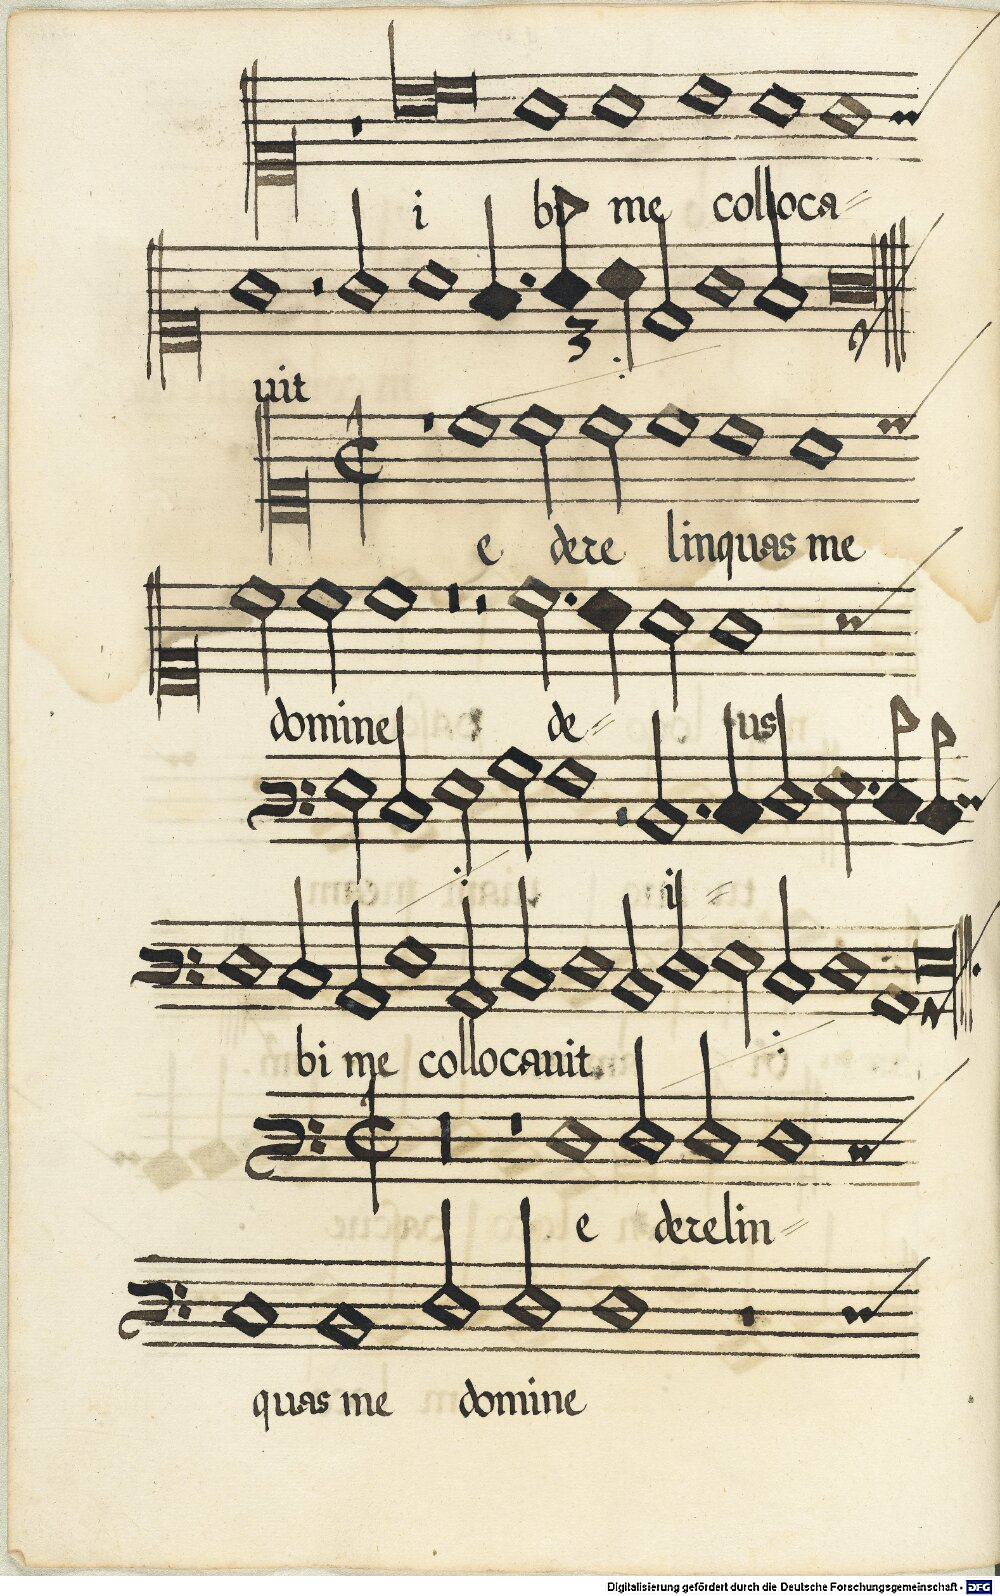 i bi me colloca
uit
3
e dere linquas me
domine de us
i i
bi me collocauit.
e derelin
quas me domine
Digitalisierung gefördert durch die Deutsche Forschungsgemeinschaft - DFG